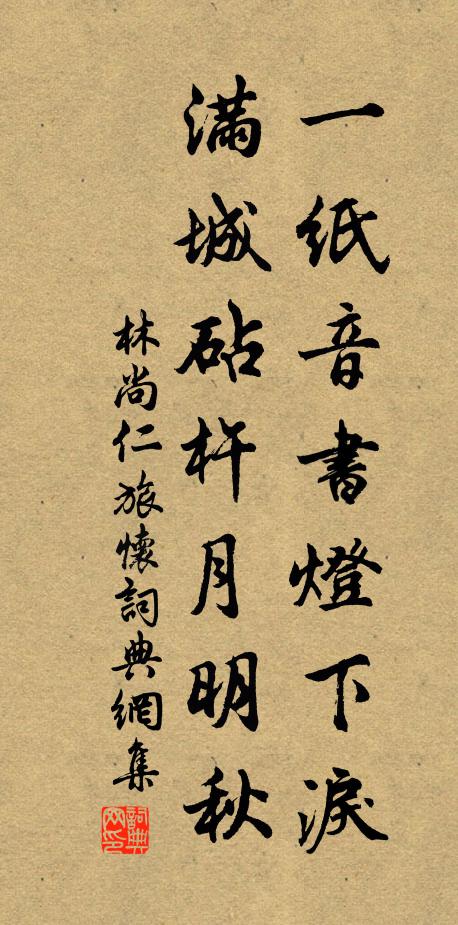 一紙音書燈下淚
滿城砧杵月明秋
林尚仁旅懷詞典網集
詞典網印